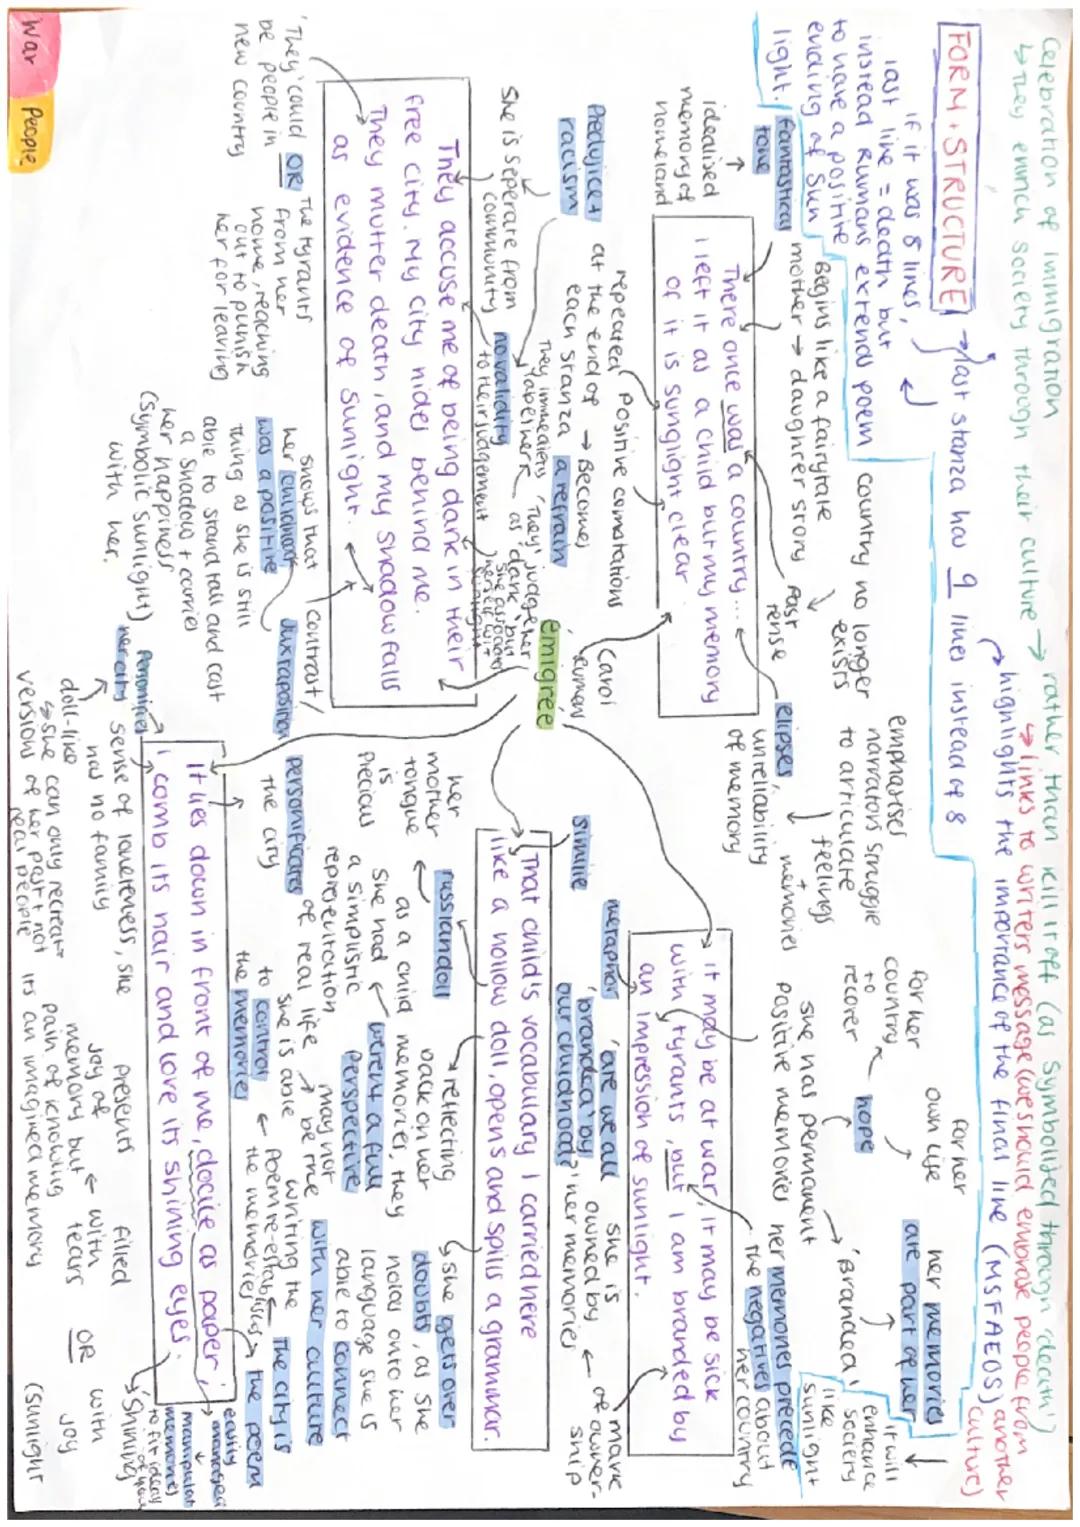 Celebration of immigration
↳ They enrich society through their culture → rather than kill it off (as symbolised through 'death')
↳ links to writers message (we should embrace people from another culture)
FORM + STRUCTURE → last stanza has 9 lines instead of 8
→ highlights the importance of the final line (MSFAEOS)
if it was 8 lines,
last line = death but
instead Rumans extends poem
to have a positive
ending of sun
light.
fantastical
tone
idealised
memory of
homeland
Begins like a fairytale
mother → daughter story
country no longer
exists
Past
tense
elipses,
emphasises
narrators struggle
to articulate
feelings
+
memories
unreliability
of memory
There once was a country...
I left it as a child but my memory
of it is sunglight clear
repeated
at the end of
each stanza
→ Becomes
a refrain
Positive conotations
Carol
Rumens
émigrée
for her
country
to
recover
hope
for her
own life
her memories
are part of her
it will
enhance
society
like
sunlight
'Branded'
she has permanent
positive memories
her memories precede
the negatives about
her country
It may be at war, it may be sick
with tyrants, but I am branded by
an impression of sunlight.
metaphor
'are we all
'branded' by
our childhood?'
she is
owned by
her memories
mark
of owner-
ship
similie
That child's vocabulary I carried here
like a hollow doll, opens and spills a grammar.
her
mother
tongue
is
precious
russian doll
as a child
she had
a simplistic
representation
of real life
reflecting
back on her
memories, they
werent a full
perspective
may not
be true
she gets over
doubts, as she
holds onto her
language she is
able to connect
with her culture
Prejudice +
racism
She is seperate from
community
no validity
to their judgement
They immediately
label her
as 'dark' but
'They' judge her
They accuse me of being dark in their
free city. My city hides behind me.
They mutter death, and my shadow falls
as evidence of sunlight.
'They' could
be people in
new country
OR
The tyrants
from her
home, reaching
out to punish
her for leaving
shows that
her childhood
was a positive
thing as she is still
able to stand tall and cast
a shadow + carries
her happiness
(symbolic sunlight)
with her.
contrast/
Juxtaposition
personificates
the city
she is able
to control
the memories
writing the
poem re-establishes
the memories
The city is
the poem
It lies down in front of me, docile as paper;
I comb its hair and love its shining eyes.
Personifies
her city
doll-like
sense of loneleness, she
has no family
↳ she can only recreate
versions of her past + not
real people
presents
joy of
memory but
pain of knowing
its an imagined memory
filled
with
tears
OR
with
joy
(sunlight
'Shining'
easily
managed
manipulate
memories
to fit ideas
of you
War
People